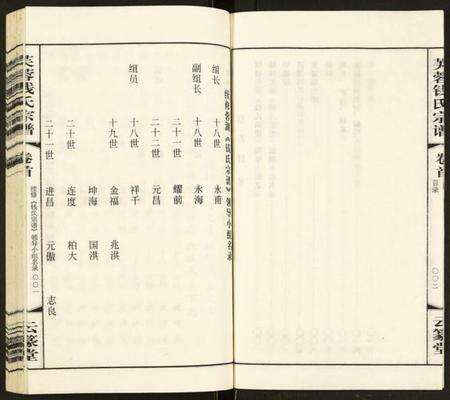 芙蓉钱氏宗谱 卷首 目录 〇〇二 云篆堂
《钱氏宗谱》领导小组名录
组长 十八世 永南
副组长 十八世 永海
二十一世 耀前
二十二世 元昌
组员 十八世 祥千
十九世 金福 兆洪
坤海 国洪
二十世 连度 柏大
二十一世 进昌 元傲 志良
芙蓉钱氏宗谱 卷首 续修《钱氏宗谱》领导小组名录 〇〇一 云篆堂